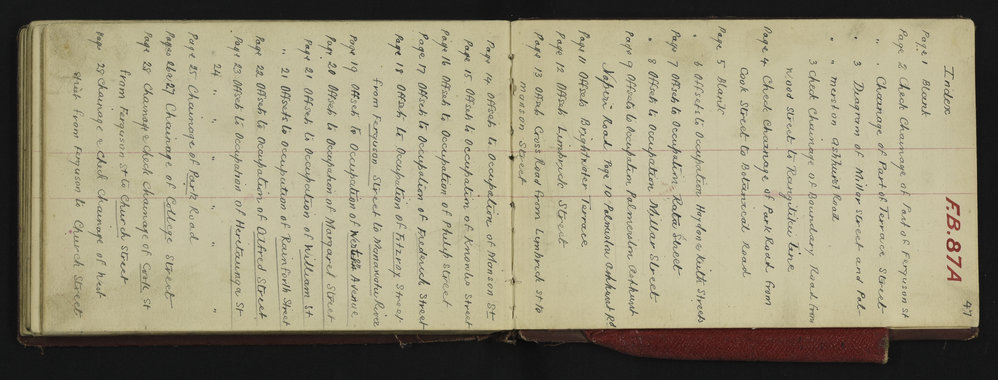 47
F.B. 87A
Index
Page 1 Blank
Page 2 Check Chainage of Part of Ferguson St
" " Chainage of Part of Terrace Street
" 3 Diagram of Millar Street and Pal-
" " merston Ashhurst Road
3 check Chainage of Boundary Road from
Wood Street to Rangitikei Line
Page 4 Check Chainage of Park Road from
Cook Street to Botanical Road
Page 5 Blank
" 6 Offsets to Occupation Haydon & Ruth Streets
Page 7 Offsets to Occupation Kata Street
" 8 Offsets to Occupation Millar Street
Page 9 Offsets to Occupation Palmerston Ashhurst
Napier Road Page 10 Palmerston Ashhurst Rd
Page 11 Offsets Brightwater Terrace
Page 12 Offsets Limbrick Street
Page 13 Offsets Cross Road from Limbrick St to
Manson Street
Page 14 Offsets to Occupation of Manson St
Page 15 Offsets to Occupation of Knowles Street
Page 16 Offsets to Occupation of Philip Street
Page 17 Offsets to Occupation of Frederick Street
Page 18 Offsets to Occupation of Fitzroy Street
Page 19 Offsets to Occupation of Avenue
from Ferguson Street to Manawatu River
Page 20 Offsets to Occupation of Margaret Street
Page 21 Offsets to Occupation of William St
" 21 Offsets to Occupation of Rainforth Street
Page 22 Offsets to Occupation of Alfred Street
Page 23 Offsets to Occupation of Heretaunga St
" 24 " " " "
Page 25 Chainage of Park Road
Pages 26 & 27 Chainage of College Street
Page 28 Chainage & Check Chainage of Cook St
from Ferguson St to Church Street
Page 29 Chainage & Check Chainage of West
Street from Ferguson to Church Street